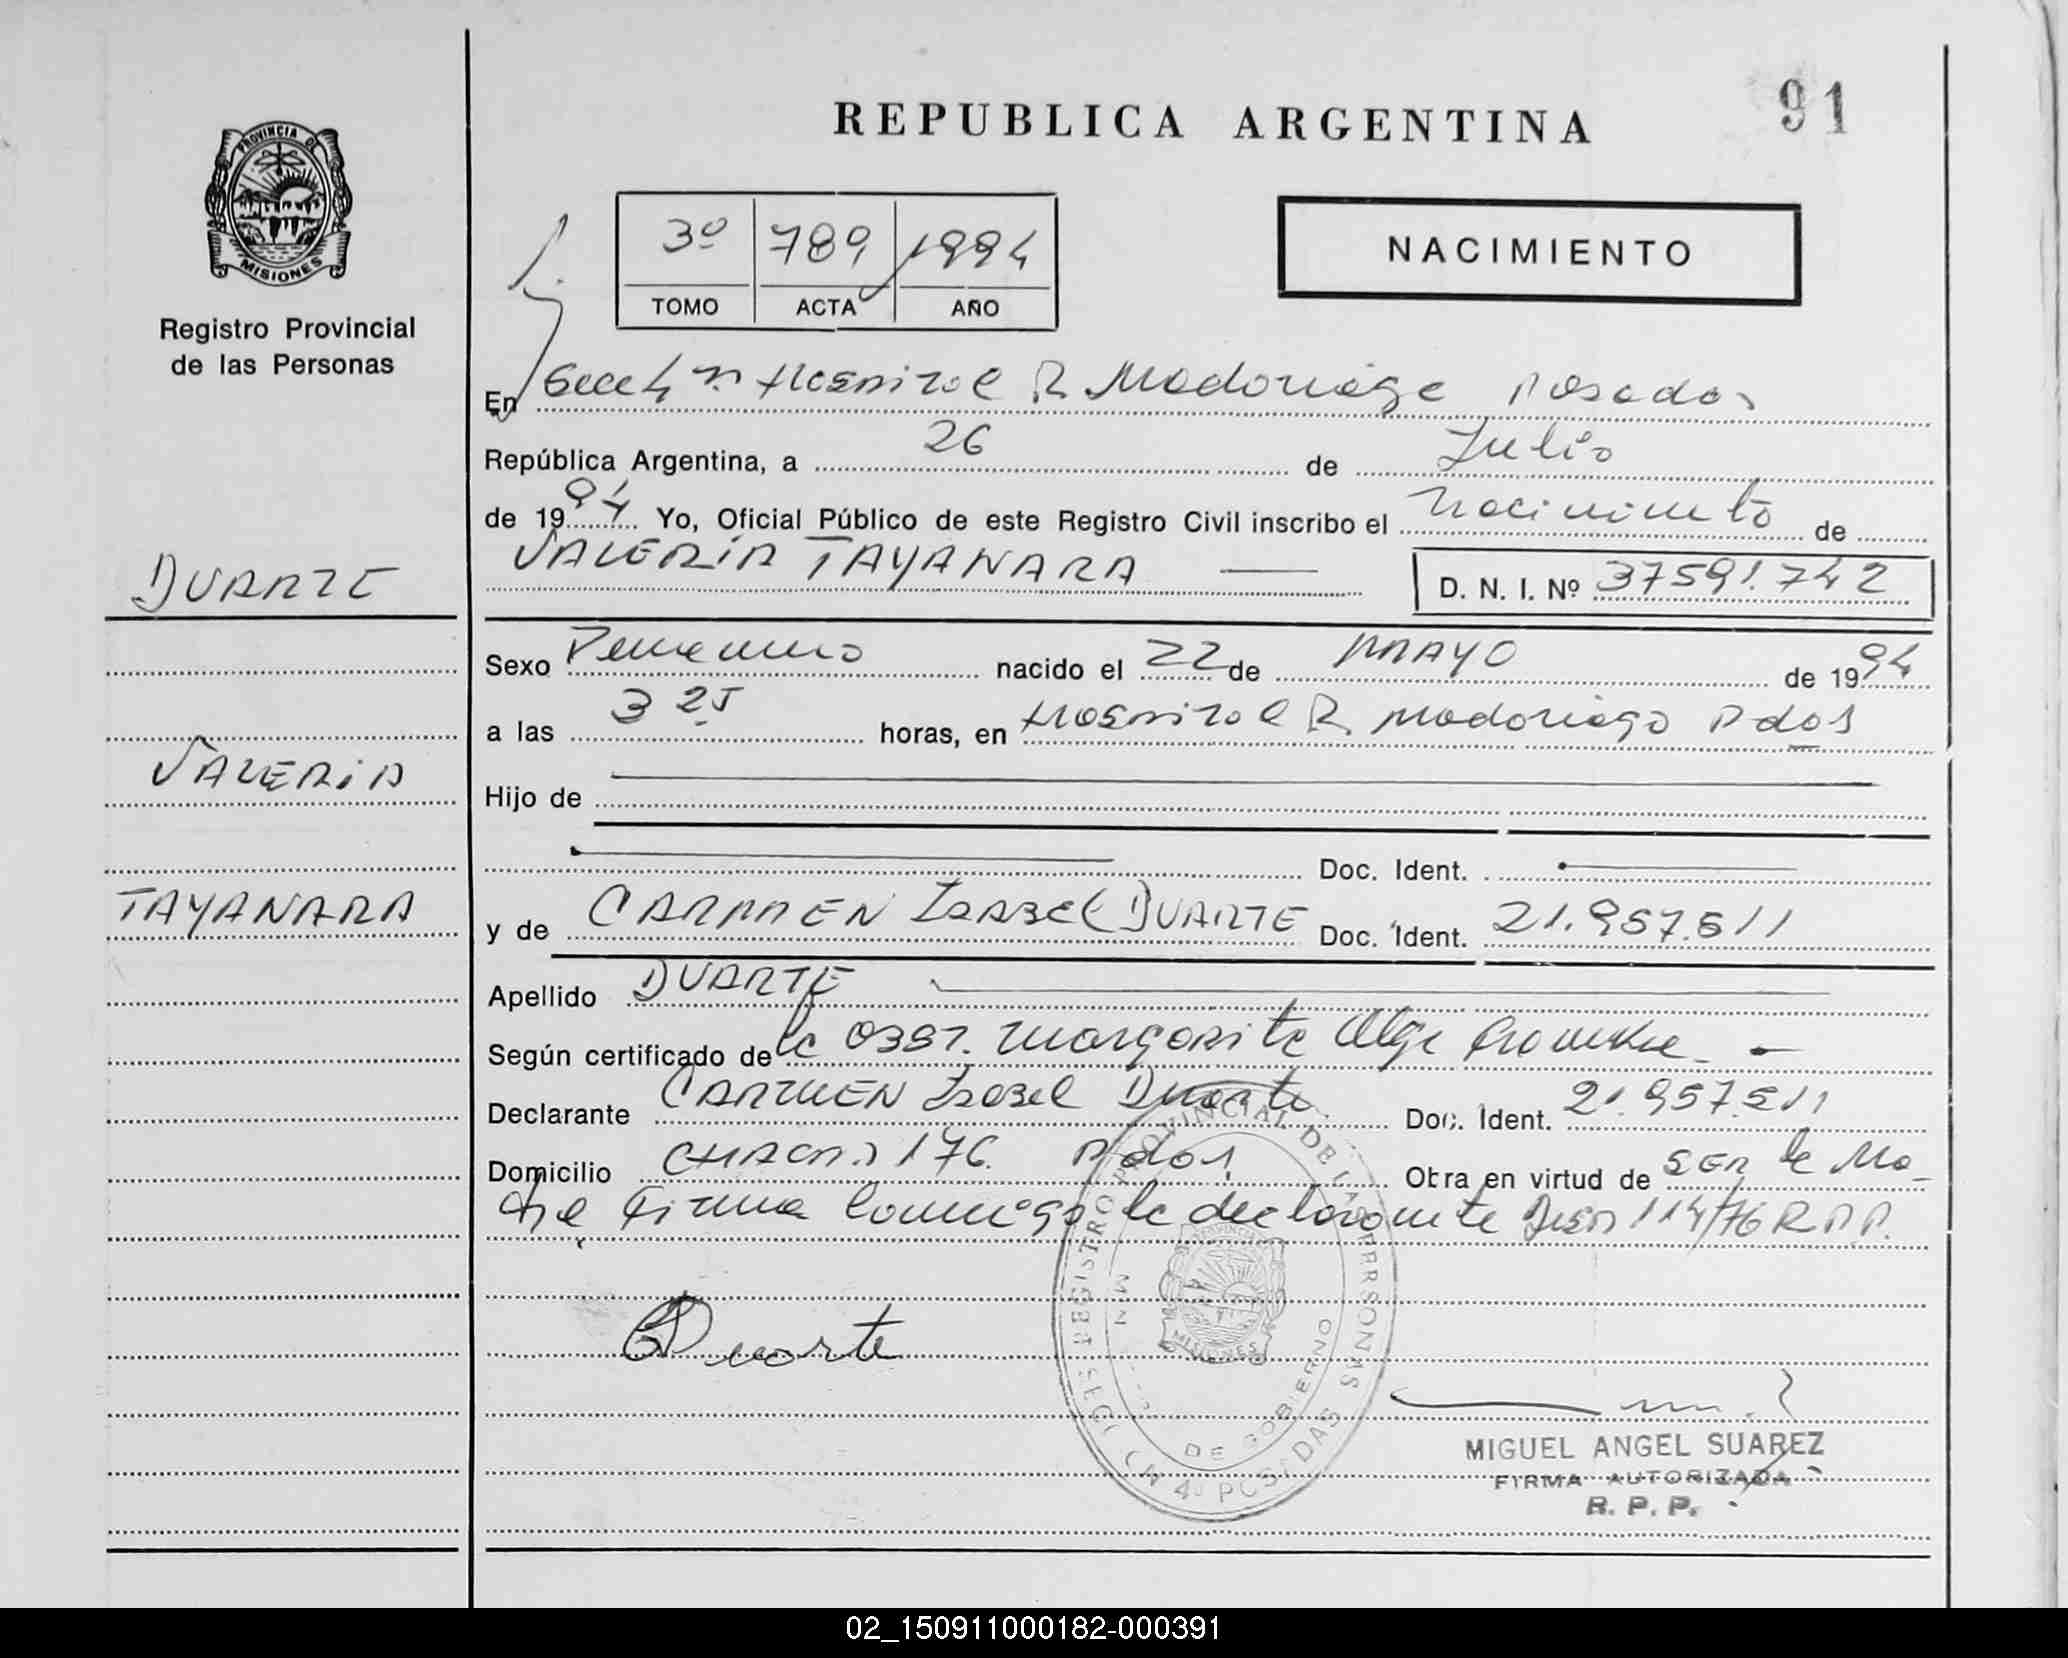 REPUBLICA ARGENTINA
91
PROVINCIA DE
MISIONES
Registro Provincial
de las Personas
3º 789 1994
TOMO ACTA AÑO
NACIMIENTO
En Secc 4ª Hospital R Madariaga Posadas
República Argentina, a 26 de Julio
de 1994 Yo, Oficial Público de este Registro Civil inscribo el nacimiento de
VALERIA TAYANARA
D. N. I. Nº 37591.742
DUARTE
Sexo Femenino nacido el 22 de MAYO de 1994
a las 3 25 horas, en Hospital R Madariaga Pdas
VALERIA
Hijo de
Doc. Ident.
TAYANARA
y de CARMEN ISABEL DUARTE Doc. Ident. 21.957.511
Apellido DUARTE
Según certificado de la Obst. Margarita Olga
Declarante CARMEN Isabel Duarte Doc. Ident. 21.957.511
Domicilio 176 Pdas Obra en virtud de SER la Ma-
dre Firma conmigo la declarante Disp 114/76 R.P.P.
Duarte
REGISTRO PROVINCIAL DE LAS PERSONAS
MISIONES
DE GOBIERNO
POSADAS
MIGUEL ANGEL SUAREZ
FIRMA AUTORIZADA
R. P. P.
02_150911000182-000391